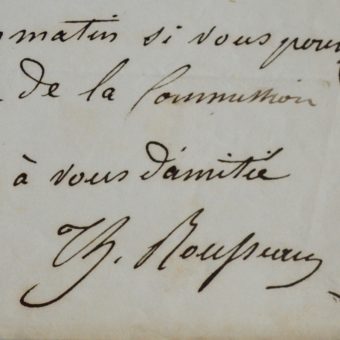 matin si vous pouv
de la Commission
à vous d'amitié
Th. Rousseau